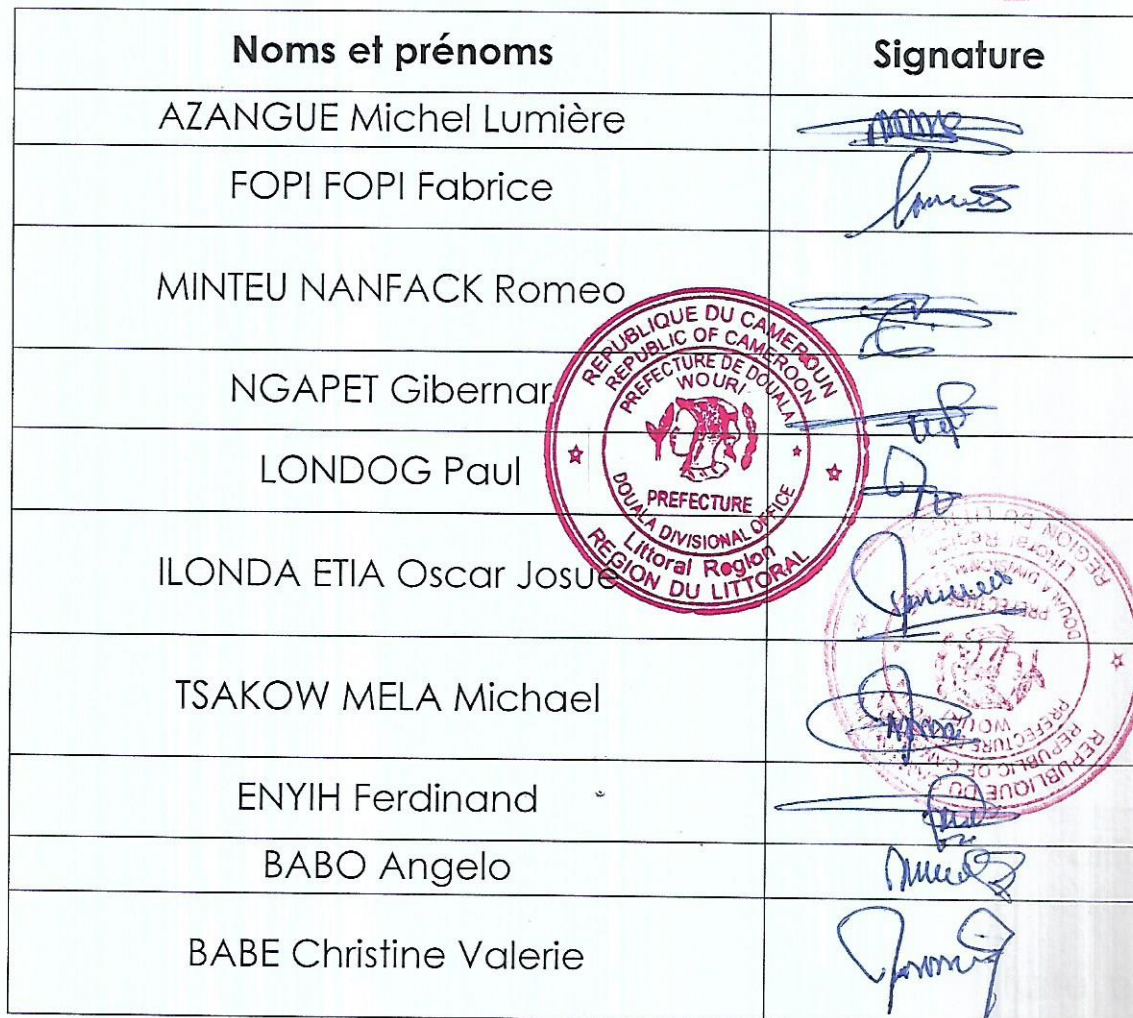 Noms et prénoms
Signature
AZANGUE Michel Lumière
FOPI FOPI Fabrice
MINTEU NANFACK Romeo
NGAPET Gibernar
LONDOG Paul
ILONDA ETIA Oscar Josué
TSAKOW MELA Michael
ENYIH Ferdinand
BABO Angelo
BABE Christine Valerie
REPUBLIQUE DU CAMEROUN
REPUBLIC OF CAMEROON
PREFECTURE DE DOUALA
WOURI
PREFECTURE
DOUALA DIVISIONAL OFFICE
Littoral Region
REGION DU LITTORAL
REPUBLIQUE DU
REPUBLIC OF
PREFECTURE
WOURI
Littoral Region
REGION DU